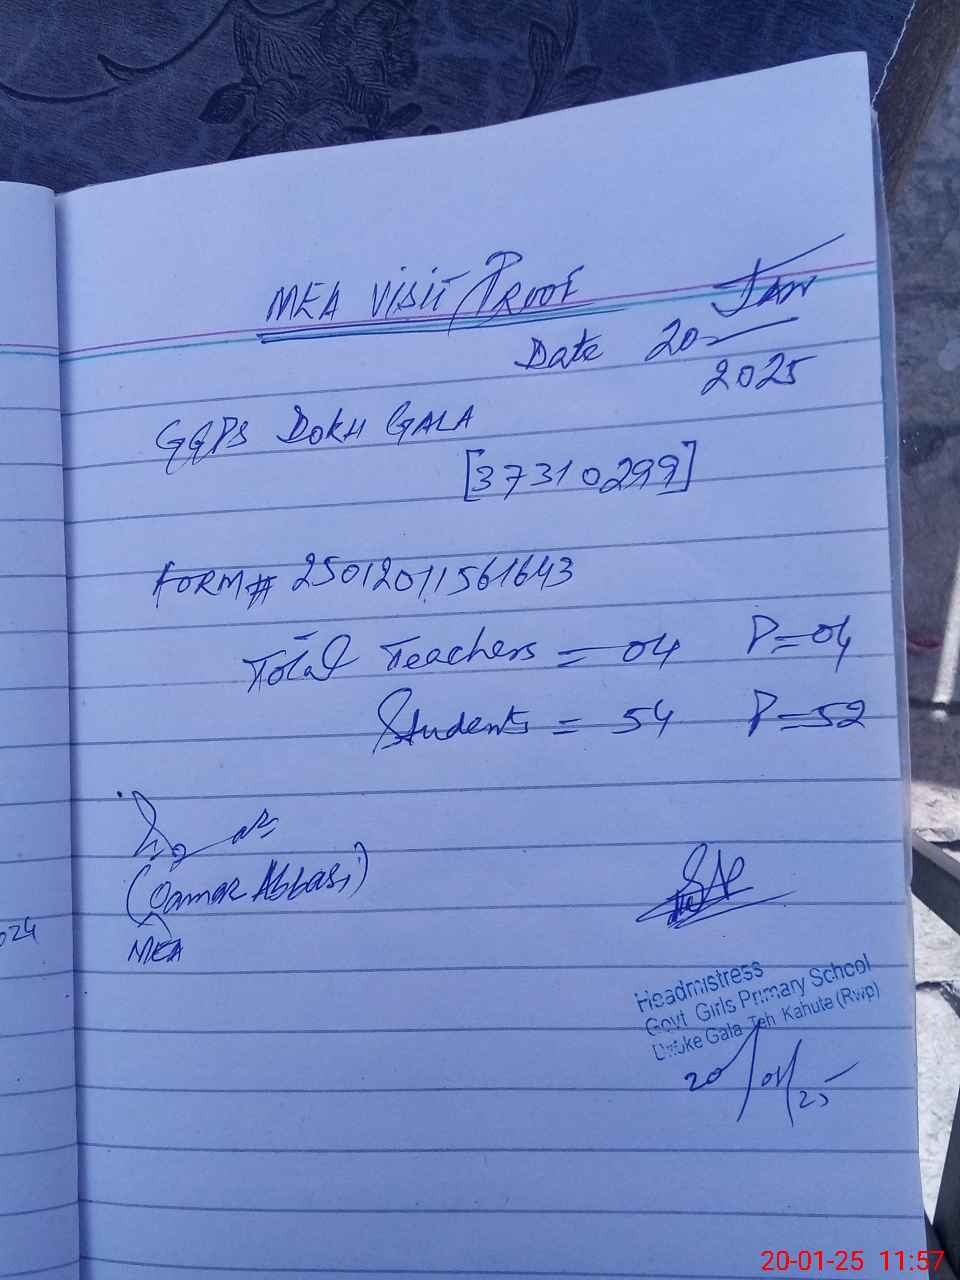 MEA VISIT/PROOF
Date 20 Jan
2025
GGPS DOKH GALA
[37310299]
FORM# 25012011561643
Total Teachers = 04 P=04
Students = 54 P=52
(Qamar Abbasi)
MEA
024
Headmistress
Govt Girls Primary School
Gala Teh Kahuta (Rwp)
20/01/25
20-01-25 11:57